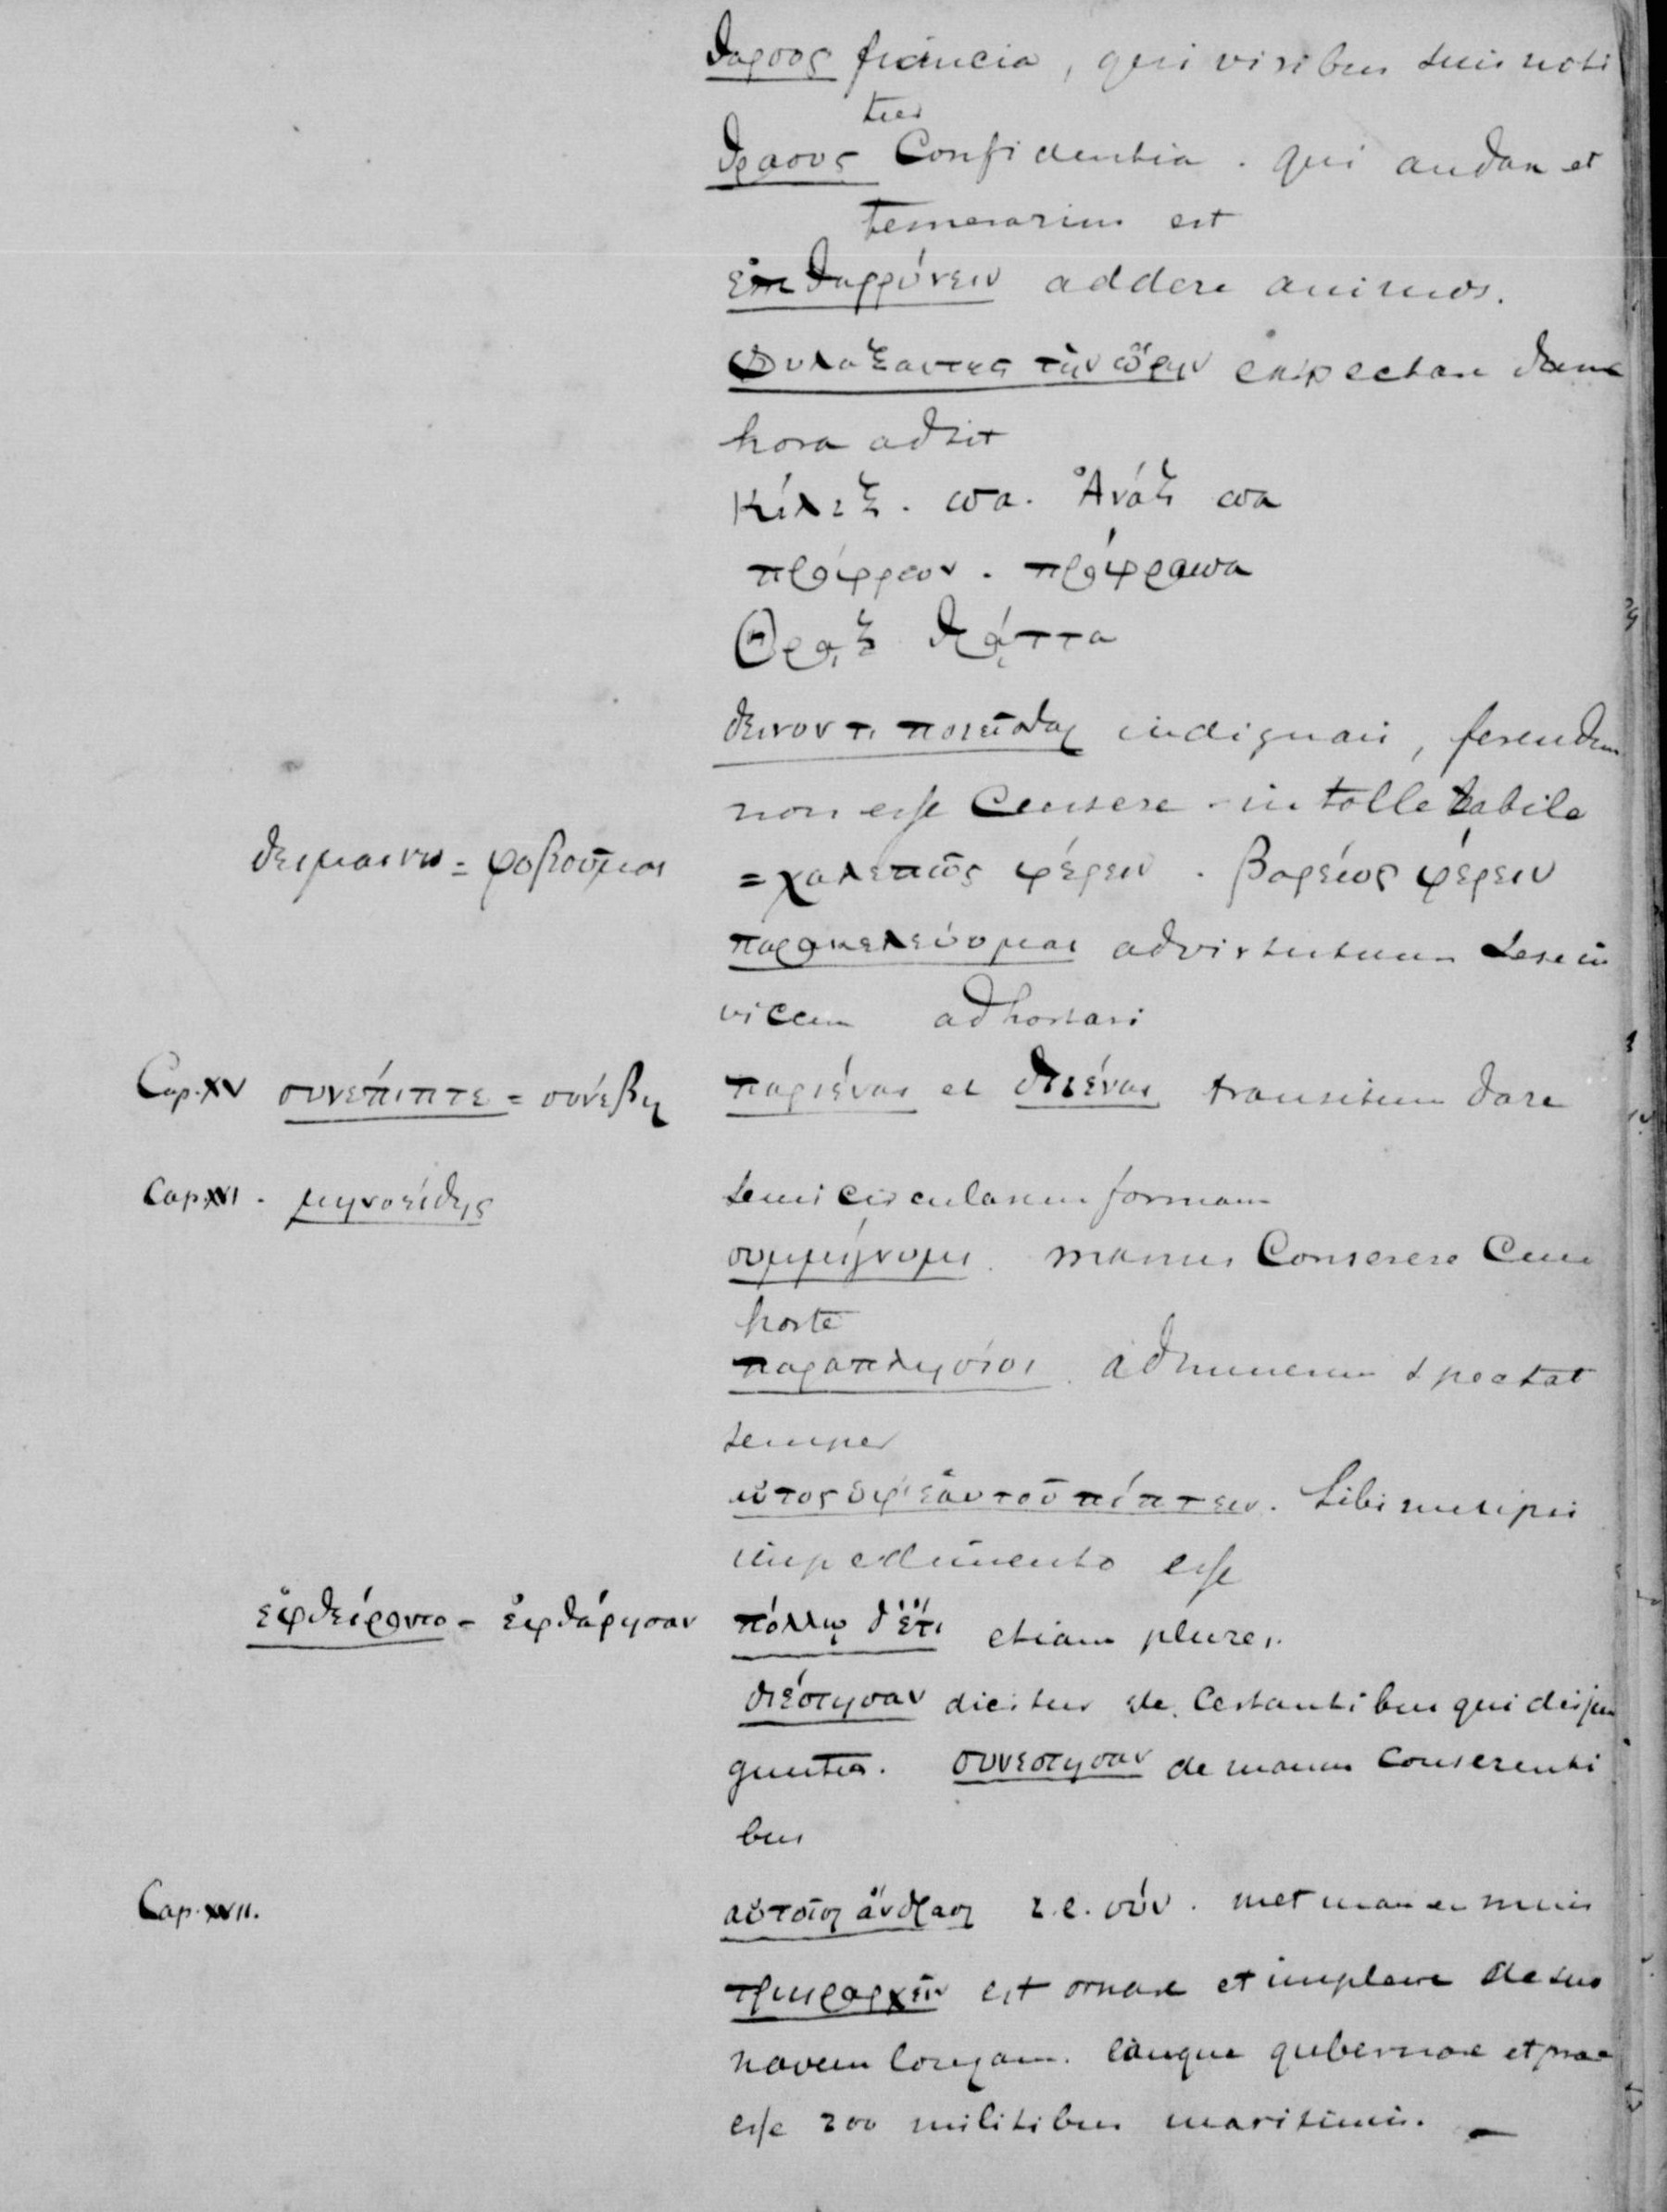 θαρσος fiducia, qui viribus suis niti
tur
θρασυς Confidentia. qui audax et
temerarius est
ἐπιθαρρύνειν addere animos.
Φυλαξαντες τὴν ὥρην exspectare dum
hora adsit
Κίλιξ. σσα. Ἄναξ σσα
πρόφρων. πρόφρασσα
Θρᾳξ θρᾴττα
δεινον τι ποιεῖσθαι indignari, ferendum
non esse Censere - intollerabile
δειμαινω = φοβοῦμαι = χαλεπῶς φέρειν. βαρέως φέρειν
παρακελεύομαι ad virtutem sese in
vicem adhortari
Cap. XV συνέπιπτε = συνέβη παριέναι et διιέναι transitum dare
Cap. XVI. μηνοείδης semicircularem formam
συμμίγνυμι. manus Conserere Cum
hoste
παραπλησιοι. ad numerum spectat
semper
αὐτος ὑφ' ἑαυτοῦ πίπτειν. sibimetipsi
impedimento esse
ἐφθείροντο - ἐφθάρησαν πόλλῳ δ' ἔτι etiam plures.
διέστησαν dicitur de Certantibus qui disjun
guntur. συνεστησαν de manus Conserenti
bus
Cap. XVII. αὐτοῖσι ἄνδρασι i.e. σύν. met man en muis
τριηραρχεῖν est ornare et implere de suo
navem longam. eamque gubernare et prae
esse 200 militibus maritimis. —